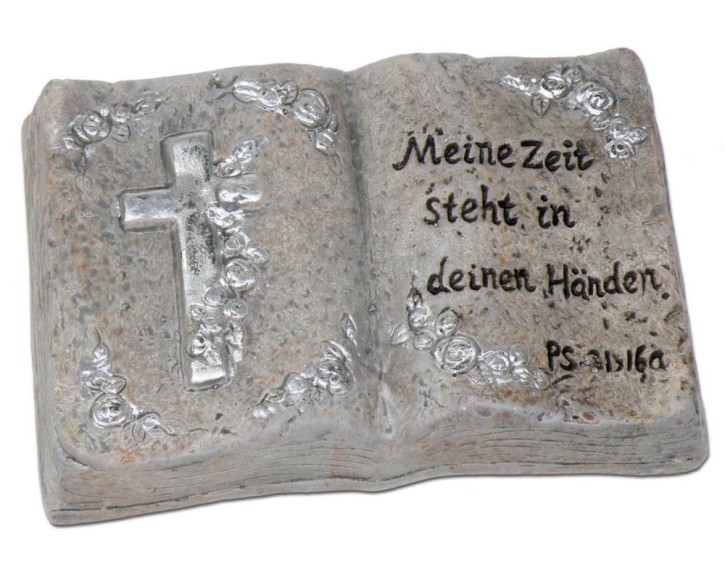 Meine Zeit
steht in
deinen Händen
PS 31,16a